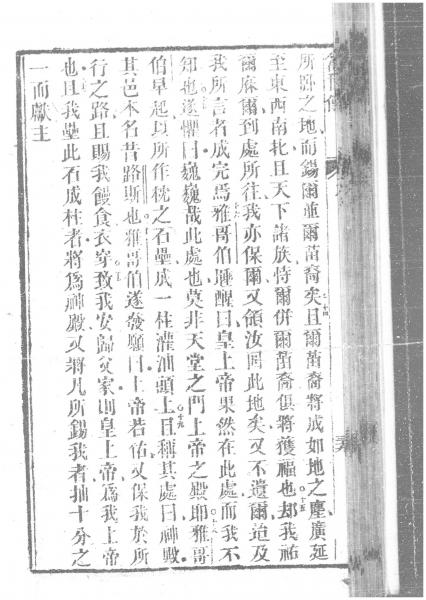 所臥之地而錫爾並爾苗裔矣且爾苗裔將成如地之塵廣延
至東西南北且天下諸族恃爾併爾苗裔俱將獲福也却我祐
爾庥爾到處所往我亦保爾又領汝回此地矣又不遺爾迨及
我所言者成完焉雅哥伯睡醒曰皇上帝果然在此處而我不
知也遂懼曰巍巍哉此處也莫非天堂之門上帝之殿耶雅哥
伯早起以所作枕之石壘成一柱灌油頭上且稱其處曰神殿
其邑本名昔路斯也雅哥伯遂發願曰上帝若祐又保我於所
行之路且賜我饅食衣穿致我安歸父家則皇上帝為我上帝
也且我壘此石成柱者將為神殿又將凡所錫我者抽十分之
一而獻主